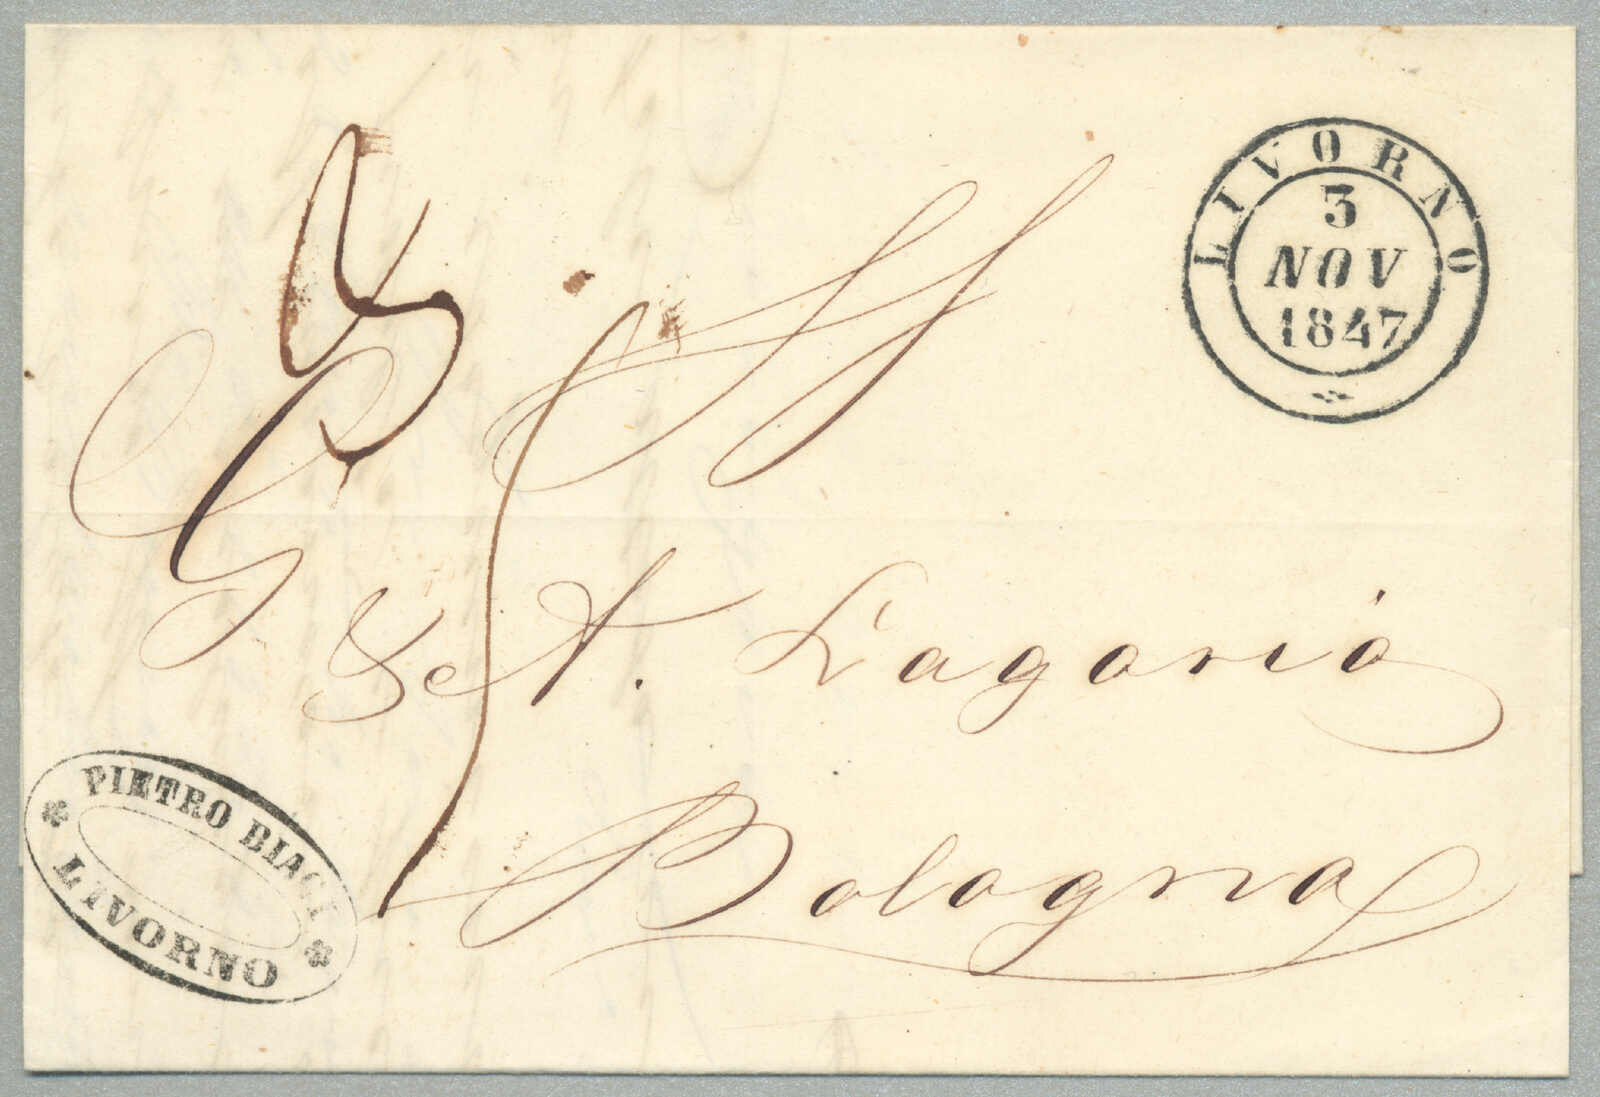 LIVORNO
3
NOV
1847
Set. Lagorio
Bologna
PIETRO BIAGI
LIVORNO